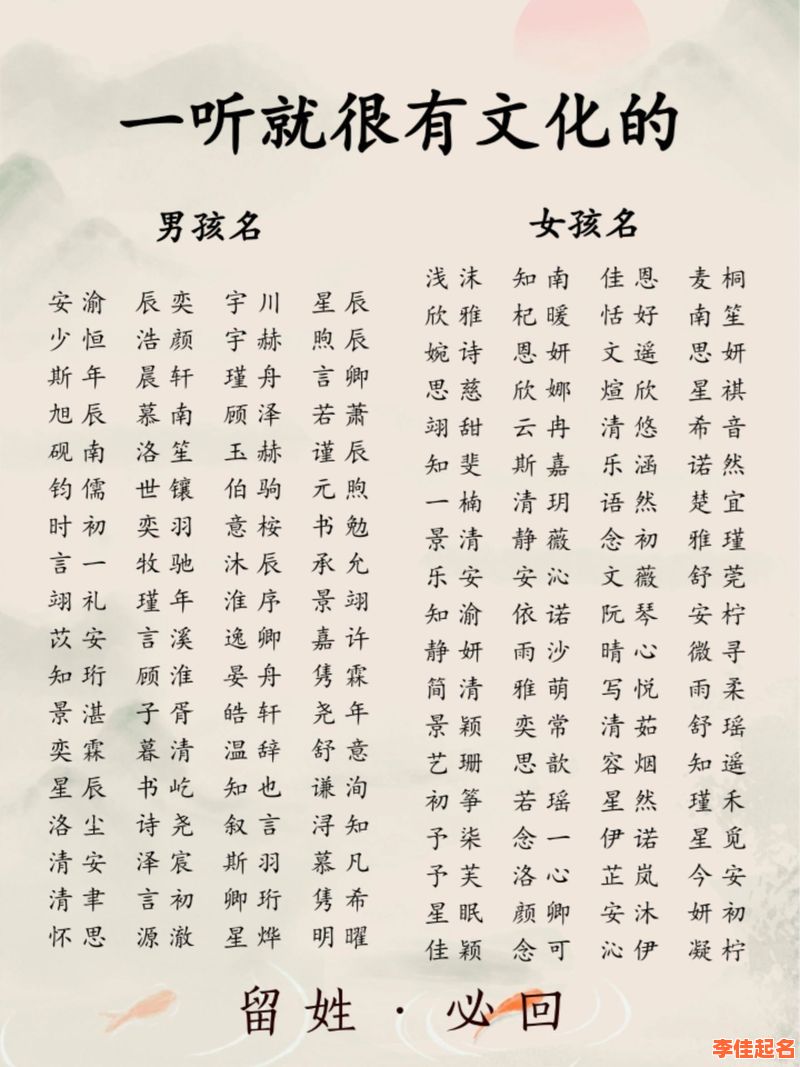 一听就很有文化的
男孩名
安渝 辰奕 宇川 星辰
少恒 浩颜 宇赫 煦辰
斯年 晨轩 瑾舟 言卿
旭辰 慕南 顾泽 若萧
砚南 洛笙 玉赫 谨辰
钧儒 世镶 伯驹 元煦
时初 奕羽 意桉 书勉
言一 牧驰 沐辰 承允
翊礼 瑾年 淮序 景翊
苡安 言溪 逸卿 嘉许
知珩 顾淮 晏舟 隽霖
景湛 子胥 皓轩 尧年
奕霖 暮清 温辞 舒意
星辰 书屹 知也 谦洵
洛尘 诗尧 叙言 浔知
清安 泽宸 斯羽 慕凡
清聿 言初 卿珩 隽希
怀思 源澈 星烨 明曜
女孩名
浅沫 知南 佳恩 麦桐
欣雅 杞暖 恬好 南笙
婉诗 恩妍 文遥 思妍
思慈 欣娜 煊欣 星祺
翊甜 云冉 清悠 希音
知斐 斯嘉 乐涵 诺然
一楠 清玥 语然 楚宜
景清 静薇 念初 雅瑾
乐安 安沁 文薇 舒莞
知渝 依诺 阮琴 安柠
静妍 雨沙 晴心 微寻
简清 雅萌 写悦 雨柔
景颖 奕常 清茹 舒瑶
艺珊 思歆 容烟 知遥
初筝 若瑶 星然 瑾禾
予柒 念一 伊诺 星觅
予芙 洛心 芷岚 今安
星眠 颜卿 安沐 妍初
佳颖 念可 沁伊 凝柠
留姓·必回
李佳起名